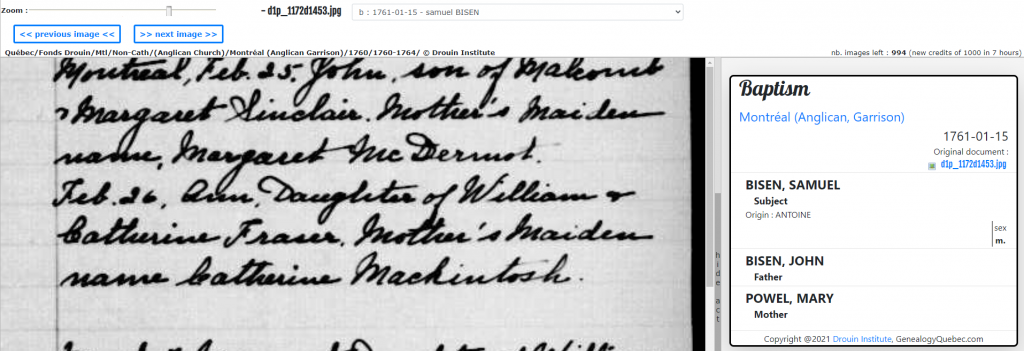 Zoom :
- d1p_1172d1453.jpg
b : 1761-01-15 - samuel BISEN
<< previous image <<
>> next image >>
Québec/Fonds Drouin/Mtl/Non-Cath/(Anglican Church)/Montréal (Anglican Garrison)/1760/1760-1764/ © Drouin Institute
nb. images left : 994 (new credits of 1000 in 7 hours)
Montreal, Feb. 25, John, son of Malcomb
& Margaret Sinclair. Mother's Maiden
name, Margaret McDermot.
Feb. 26, Ann, Daughter of William &
Catherine Fraser. Mother's Maiden
name Catherine Mackintosh.
hide act
Baptism
Montréal (Anglican, Garrison)
1761-01-15
Original document :
d1p_1172d1453.jpg
BISEN, SAMUEL
Subject
Origin : ANTOINE
sex
m.
BISEN, JOHN
Father
POWEL, MARY
Mother
Copyright @2021 Drouin Institute, GenealogyQuebec.com